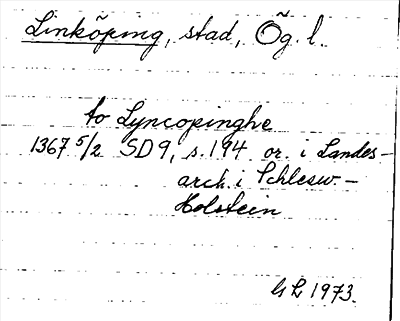 Linköping, stad, Ög. l.
to Lyncopinghe
1367 5/2 SD9, s. 194 or. i Landes-
arch. i Schlesw.-
Holstein
1973.